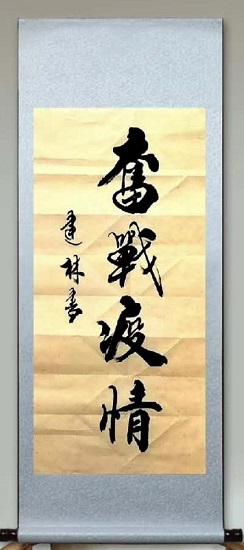 奮戰疫情
建林書